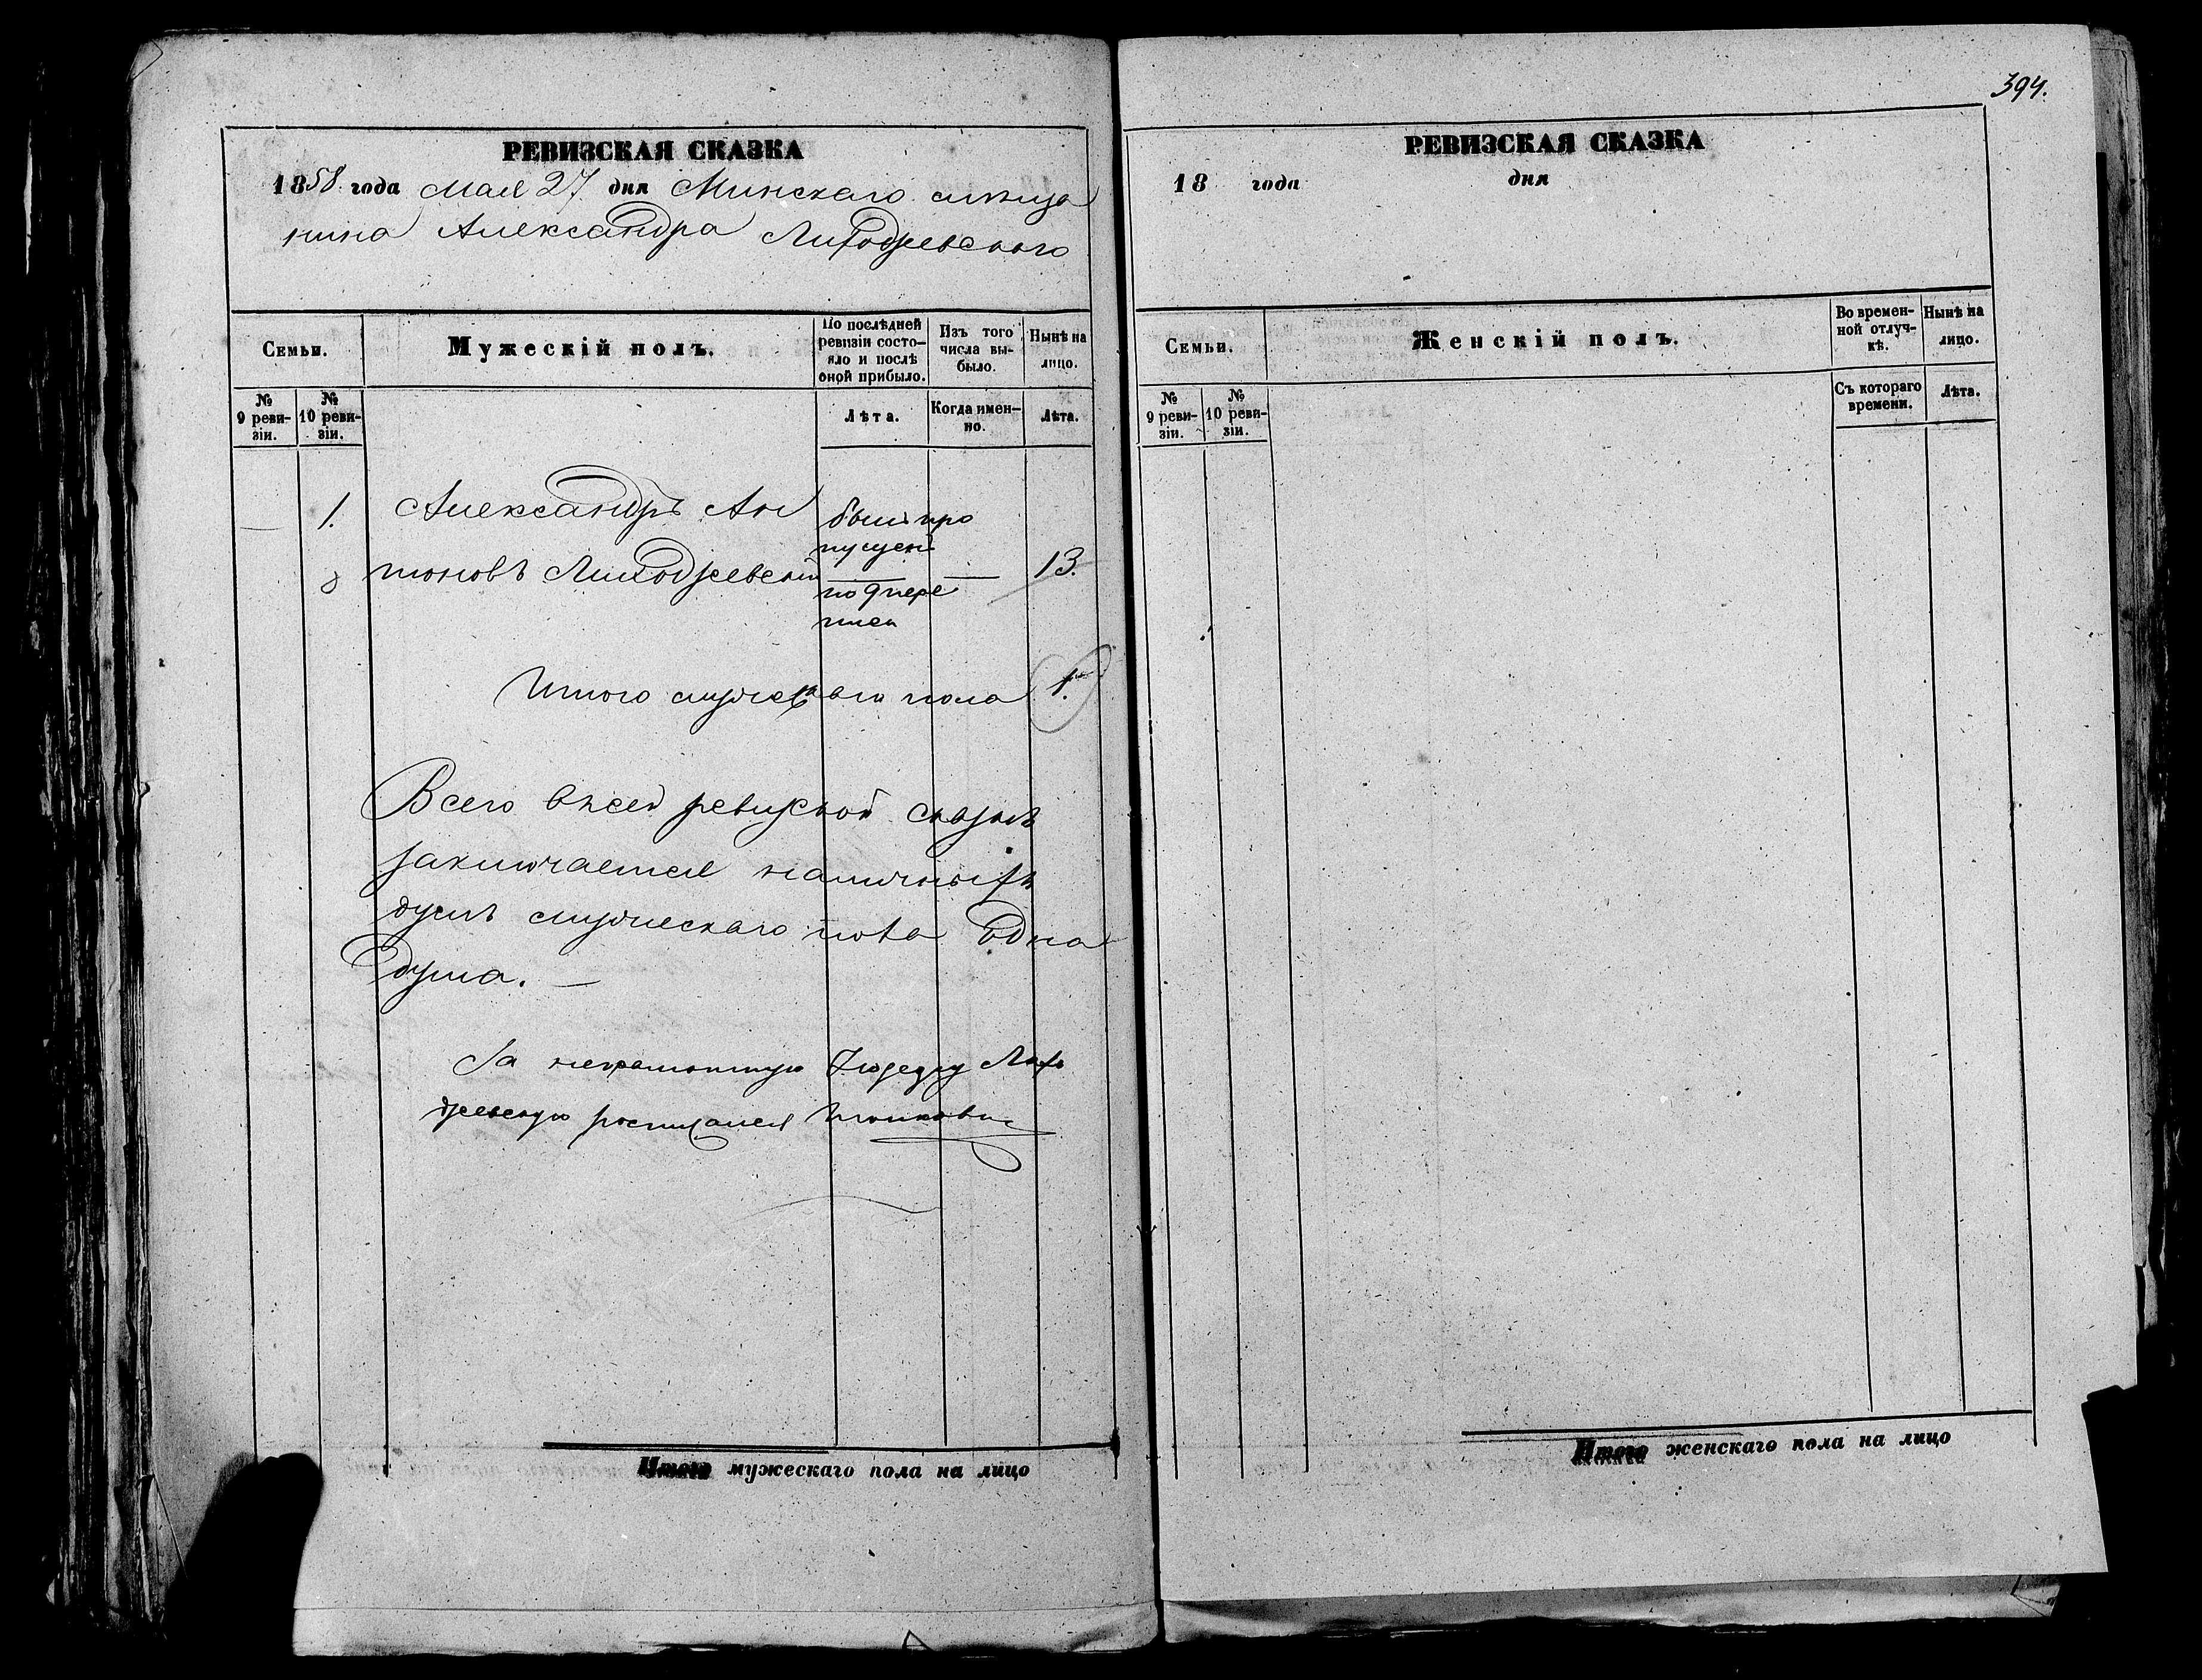 394.
РЕВИЗСКАЯ СКАЗКА
1858. года Мая 27. дня Минскаго мѣща
нина Александра Лиходзевскаго
Семьи.
Мужескій полъ.
По послѣдней
ревизіи состо-
яло и послѣ
оной прибыло.
Изъ того
числа вы-
было.
Нынѣ на
лицо.
№
9 реви-
зіи.
№
10 реви-
зіи.
Лѣта.
Когда имен-
но.
Лѣта.
1. Александръ Ан
тоновъ Лиходзевскій
былъ про
пущенъ
по 9 пере
писи
13.
Итого мужескаго пола 1.
Всего въ сей ревизской сказкѣ
заключается наличныхъ
душъ мужескаго пола Одна
душа. —
За неграмотную Лихо
дзевскую росписался
Итого мужескаго пола на лицо
РЕВИЗСКАЯ СКАЗКА
18 года дня
Семьи.
Женскій полъ.
Во времен-
ной отлуч-
кѣ.
Нынѣ на
лицо.
№
9 реви-
зіи.
№
10 реви-
зіи.
Съ котораго
времени.
Лѣта.
Итого женскаго пола на лицо